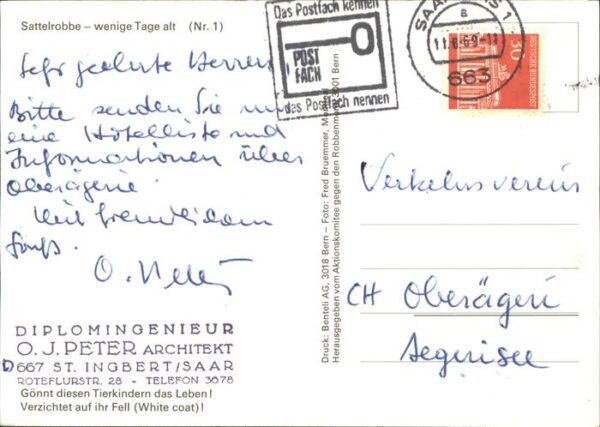 Sattelrobbe – wenige Tage alt (Nr. 1)
Sehr geehrte Herren
Bitte senden Sie mir
eine Hotelliste und
Informationen über
Oberägeri.
Mit freundlichem
Gruß.
Das Postfach kennen
POST
FACH
das Postfach nennen
663
30
DEUTSCHE BUNDESPOST
Druck: Benteli AG, 3018 Bern – Foto: Fred Bruemmer,
Herausgegeben vom Aktionskomitee gegen den Robbenmord, 3001 Bern
Verkehrsverein
CH Oberägeri
Aegerisee
DIPLOMINGENIEUR
O. J. PETER ARCHITEKT
D 667 ST. INGBERT/SAAR
ROTEFLURSTR. 28 - TELEFON 3678
Gönnt diesen Tierkindern das Leben!
Verzichtet auf ihr Fell (White coat)!